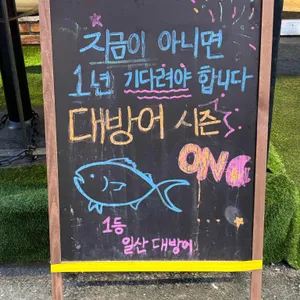 지금이 아니면
1년 기다려야 합니다
대방어 시즌
ON
1등
일산 대방어